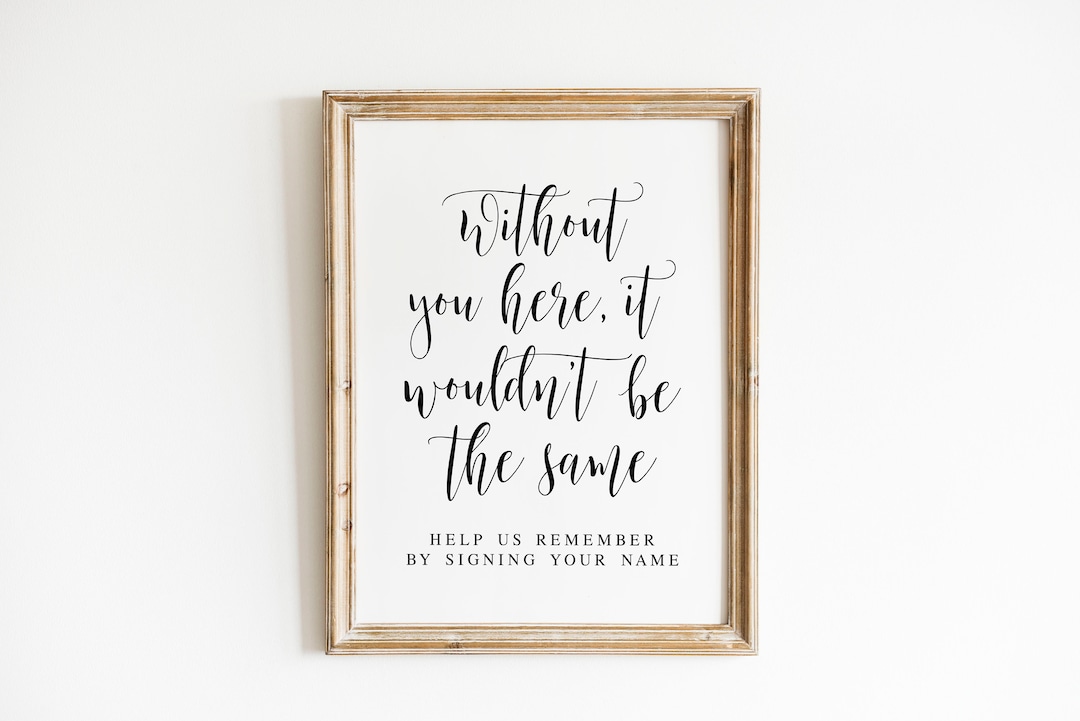 Without
you here, it
wouldn't be
the same
HELP US REMEMBER
BY SIGNING YOUR NAME